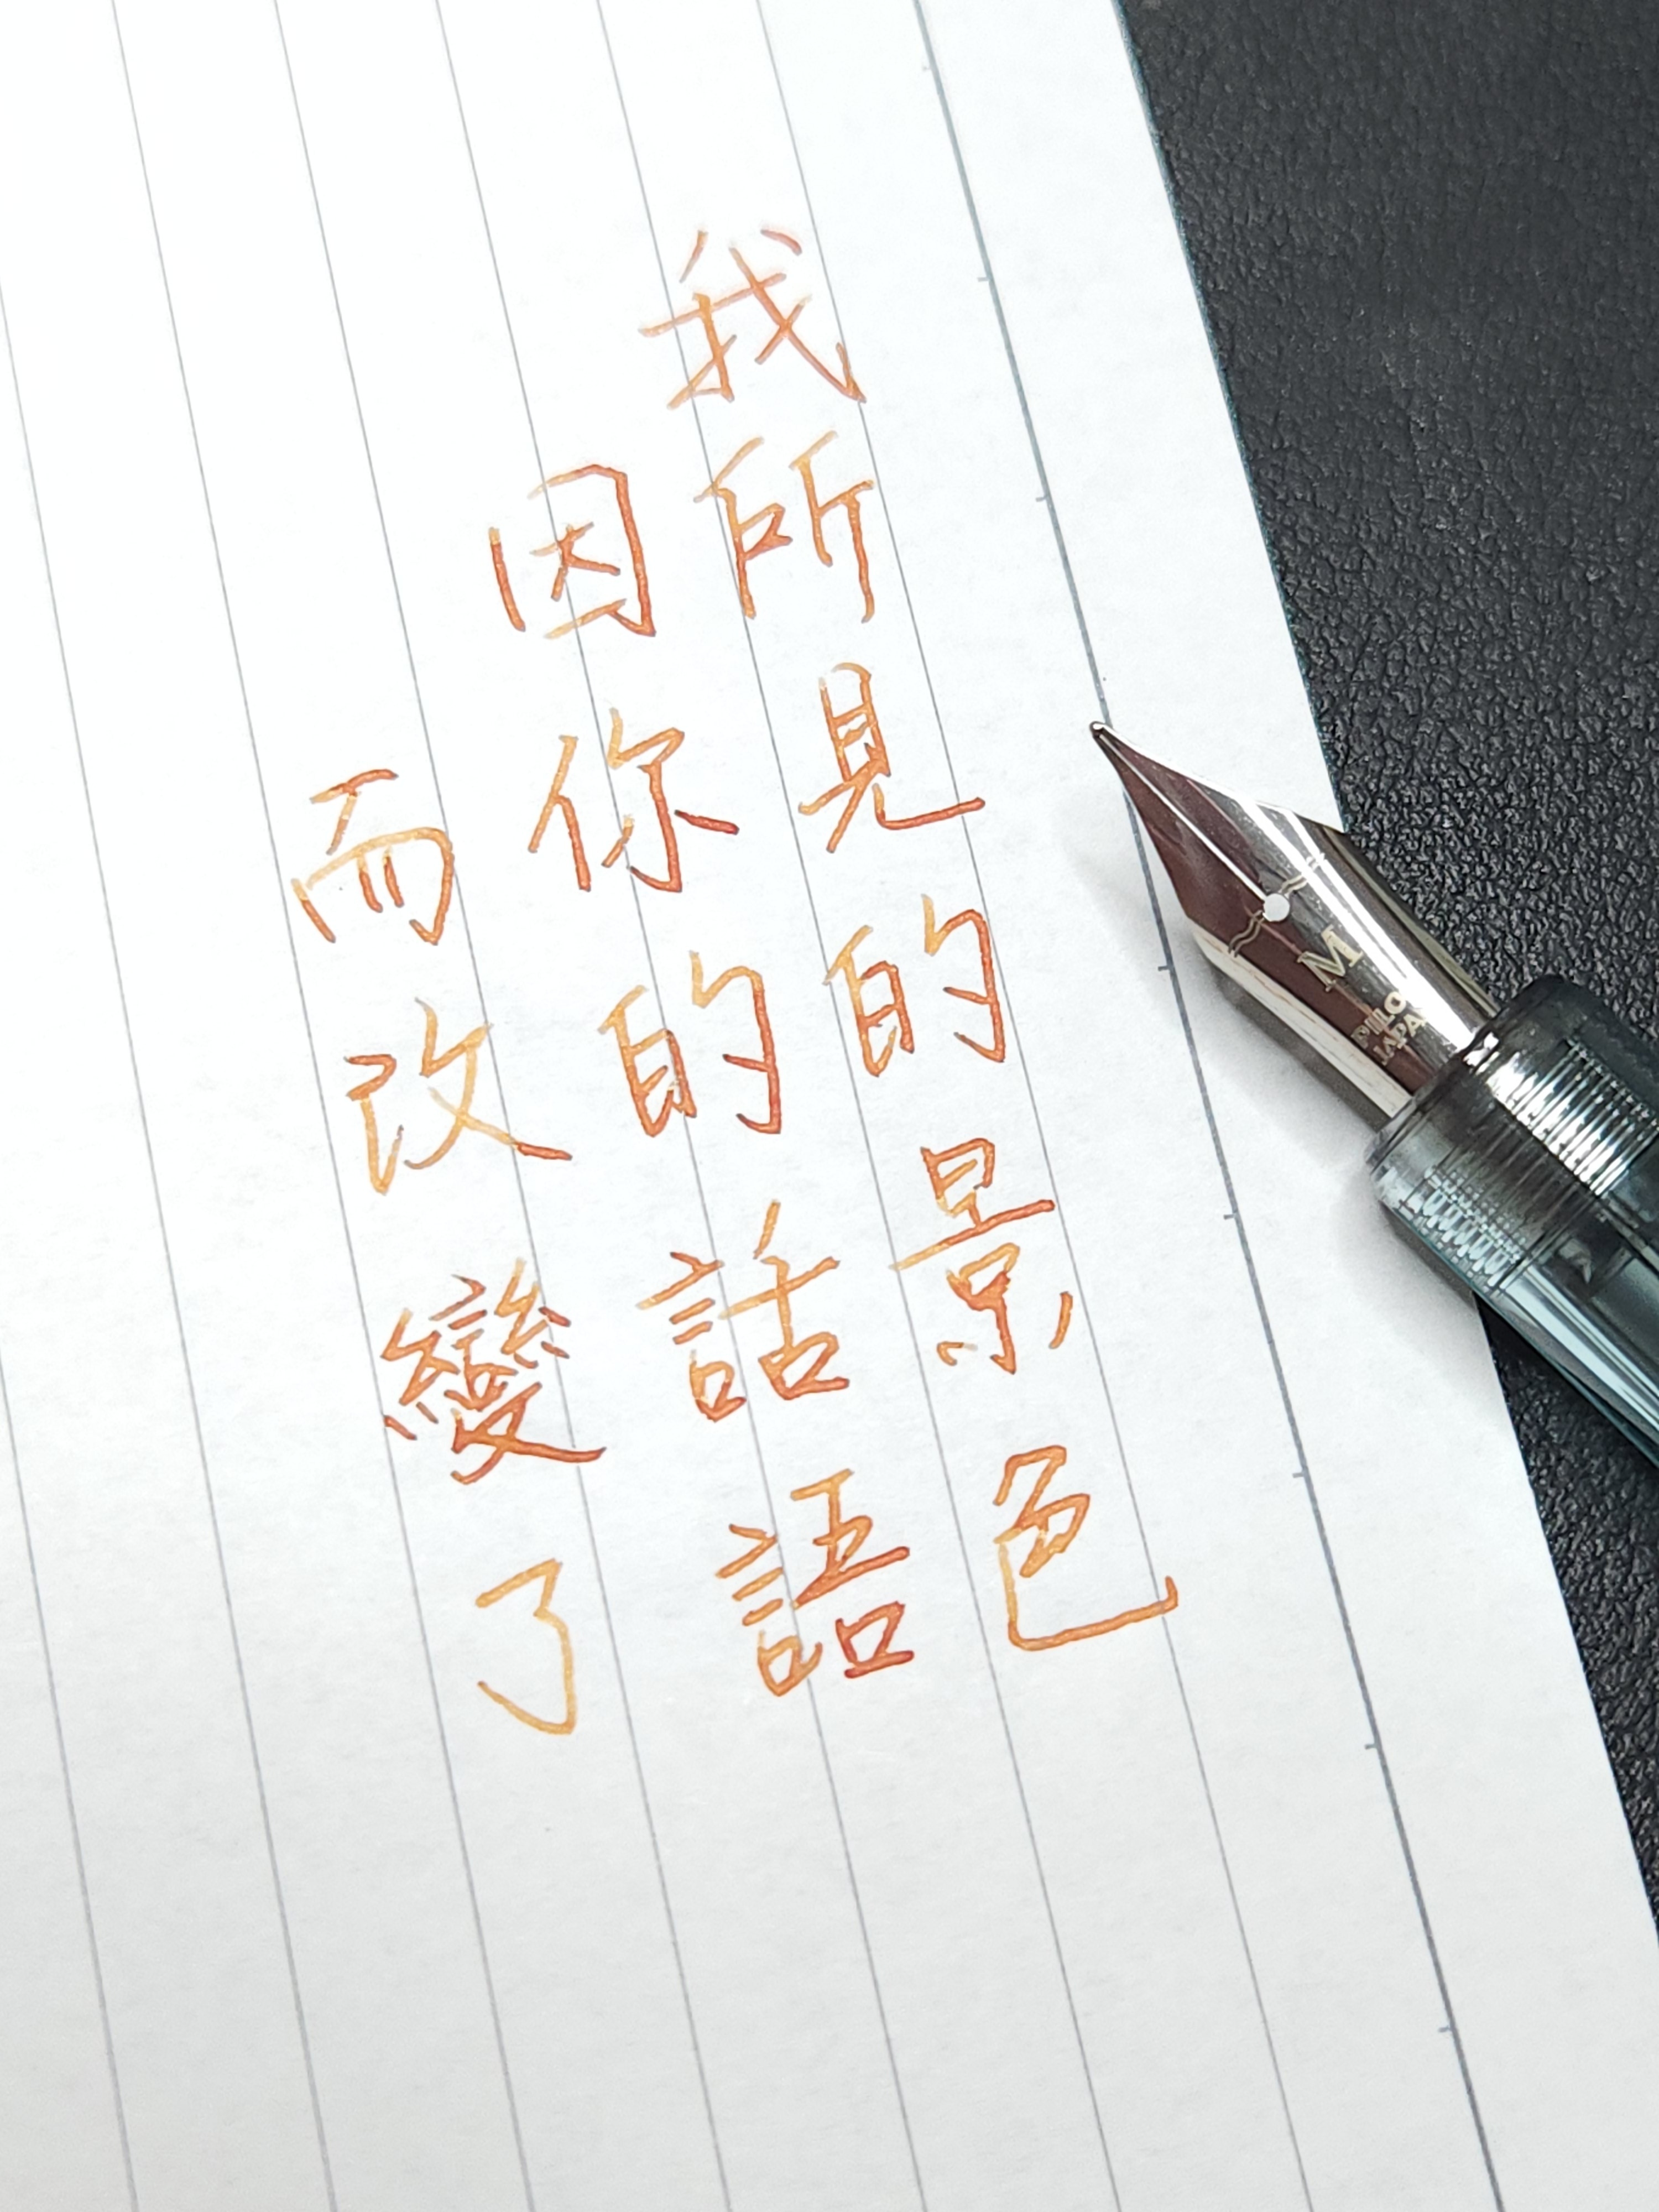 我所見的景色
因你的話語
而改變了
M
PILOT
JAPAN